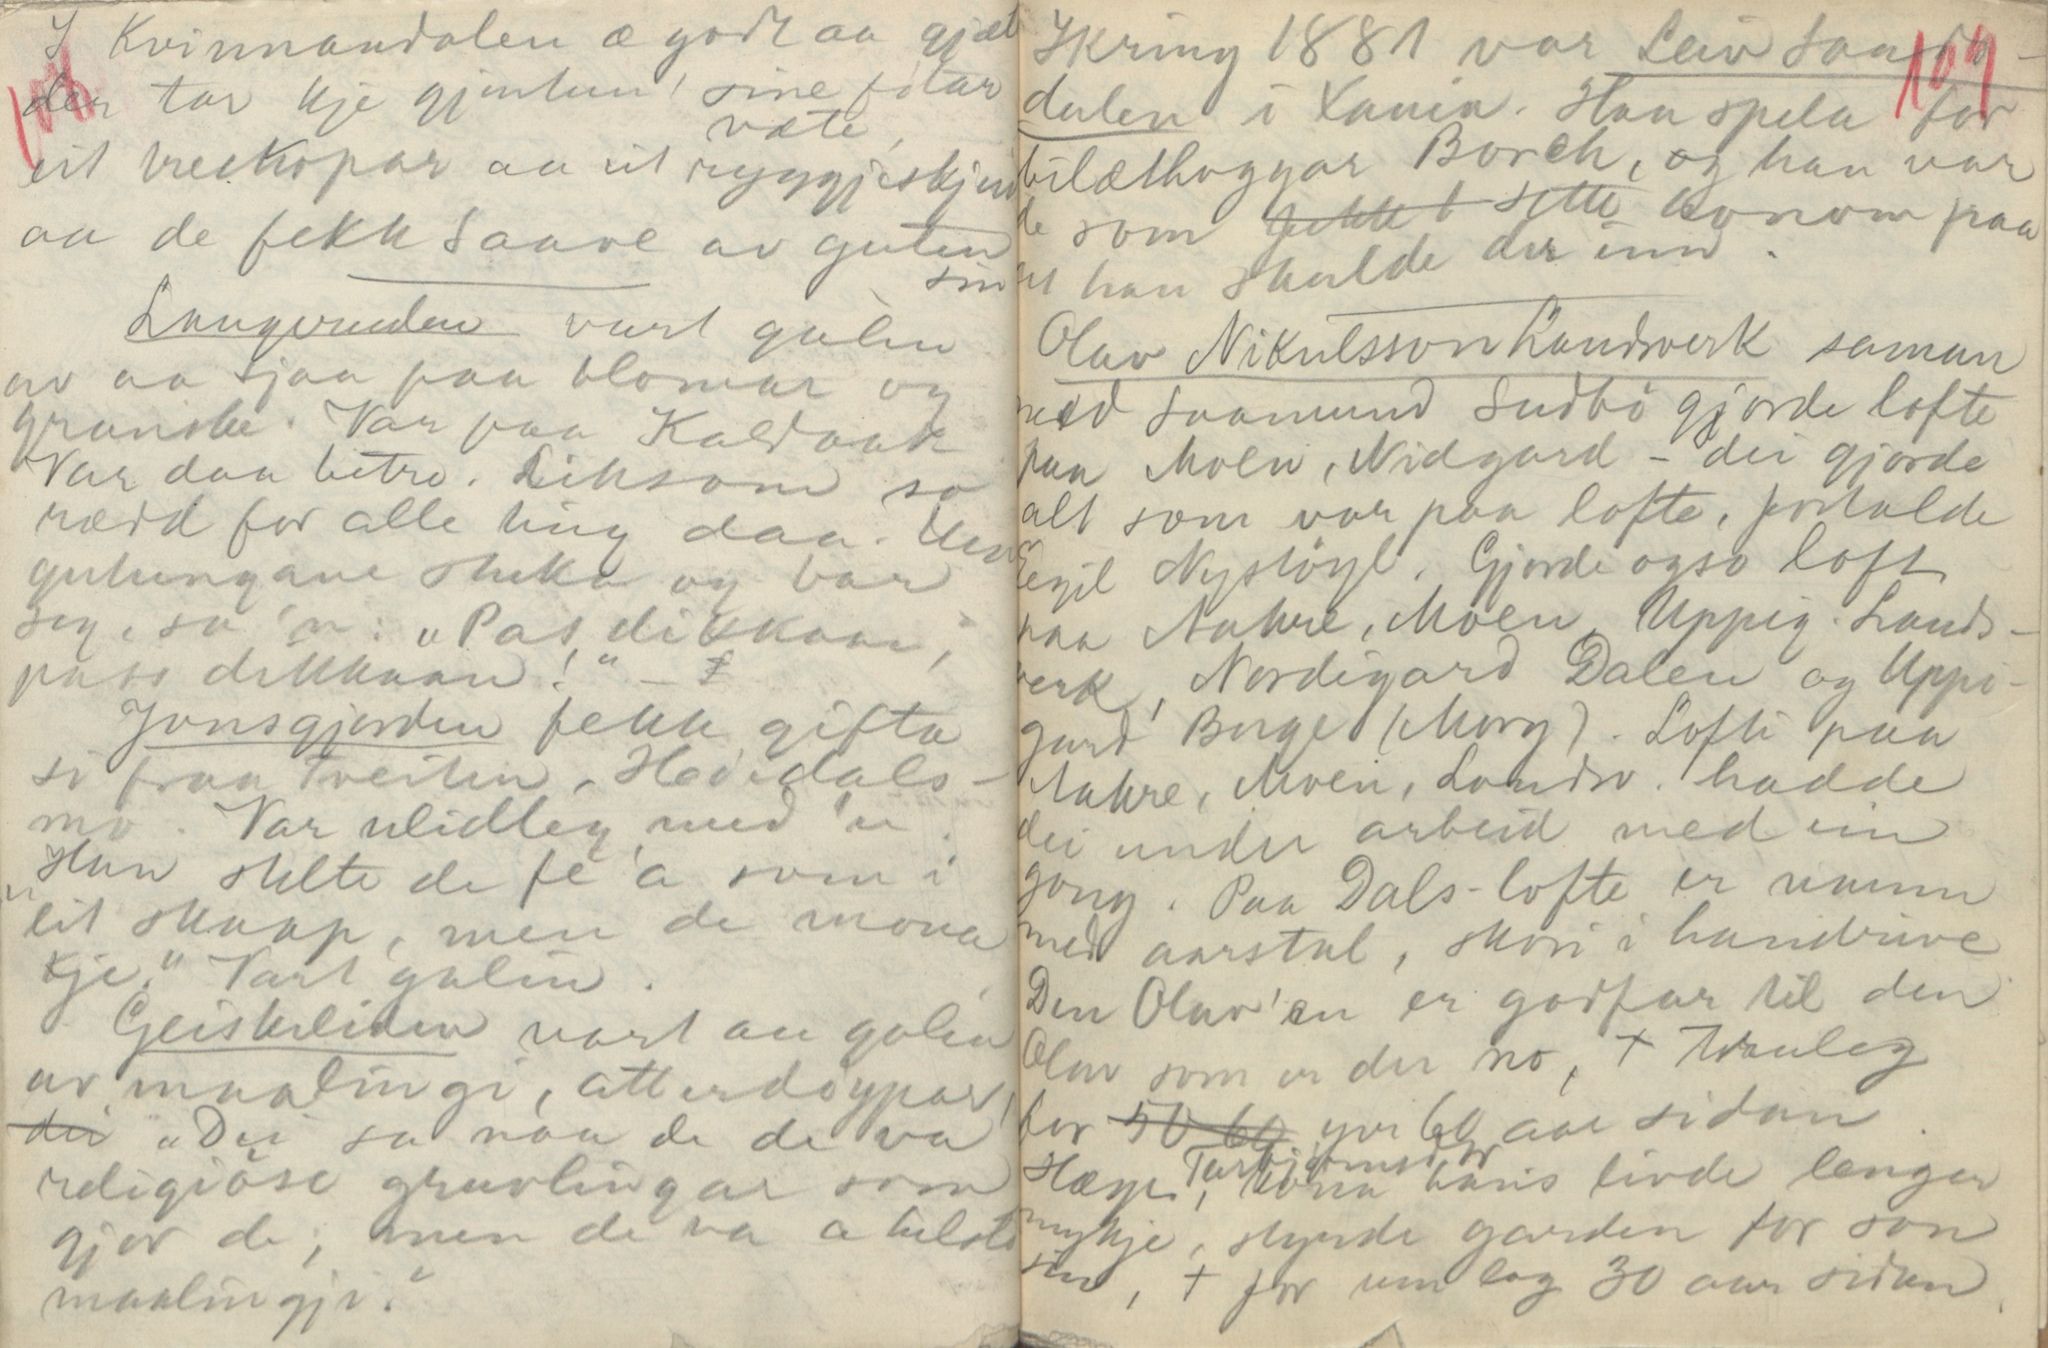 108
I Kvinnandalen æ godt aa gjæt
der tar kje gjentun' sine fötar
væte,
eit treskopar aa eit ryggjeskjin
aa de fekk Saave av guten
sin
Langeruden vart galen
av aa sjaa paa blomar og
granske. Var paa Kaldaak
Var daa betre. Liksom so
rædd for alle ting daa. Um
gutungane skeka og bar
seg, sa 'n: „Pas, dikkaan,
pass dikkaan!" –
Jonsgjorden fekk gifta
si fraa Tveiten, Heiedals-
mo. Var ulidleg med 'n.
Han stelte de fe 'a som i
"eit skaap, men de mona
kje." Vart galin.
Geiskeliden vart au galin
av maalingi, atterdöypar,
dei „Dei sa naa de de va
religiöse gruvlingar som
gjor de; men de va a helst
maalingji."
109
Ikring 1881 var Leiv Sandsdalen
dalen i Xania. Han spela for
bilæthoggar Borch, og han var
de som fekk sette honom paa
at han skulde der inn.
Olav Nikulsson Landsverk saman
med Saamund Sudbö gjorde lofte
paa Moen, Nidgard – dei gjorde
alt som var paa lofte, fortalde
Eegil Nystöyl. Gjorde ogso loft
paa Nahre, Moen, Uppig. Lands-
verk, Nordigard Dalen og Uppi-
gard Berge (Morg). Lofti paa
Nahre, Moen, Landsv. hadde
dei under arbeid med ein
gong. Paa Dals-lofte er namn
med aarstal, skori i handrive
Den Olav'en er godfar til den
Olav som er der no, + truleg
for 50 60 yvi 60 aar sidan.
Hæge Tarbjørnsdtr, kona hans livde lenger
mykje, styrde garden for son
sin, + for um lag 30 aar sidan.